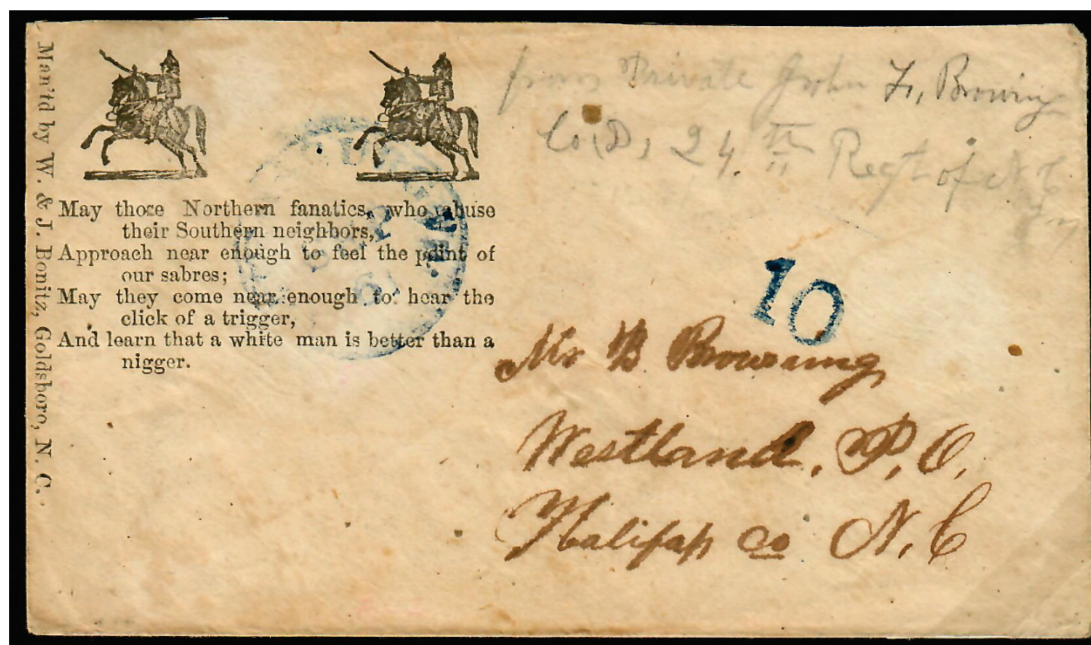 Manf'd by W. & J. Bonitz, Goldsboro, N. C.
May those Northern fanatics, who abuse
their Southern neighbors,
Approach near enough to feel the point of
our sabres;
May they come near enough to hear the
click of a trigger,
And learn that a white man is better than a
nigger.
from Private John F, Browing
Co, D, 24.th Regt of N C
10
Mr B Browning
Westland, P, O,
Halifax co N, C